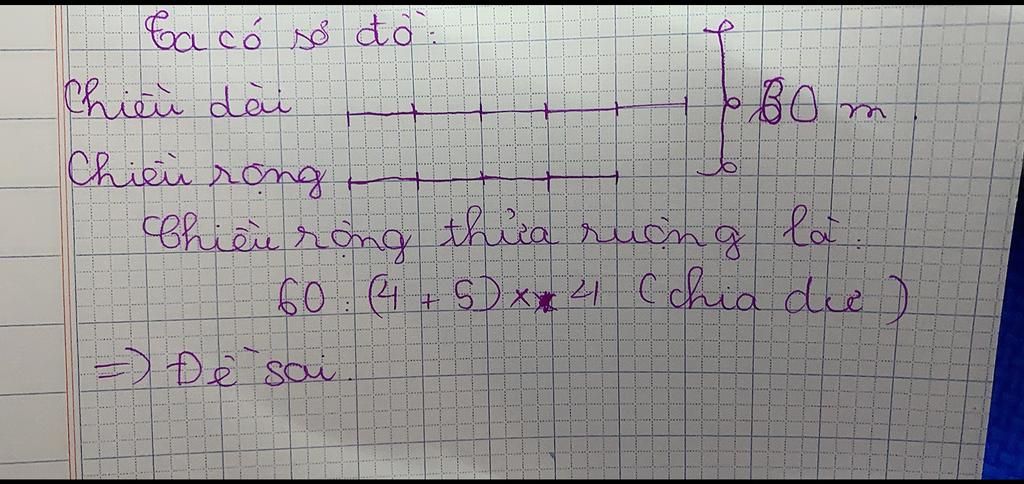 Ta có sơ đồ:
Chiều dài 60 m.
Chiều rộng
Chiều rộng thửa ruộng là:
60 : (4 + 5) x 4 (chia dư)
=> Đề sai.